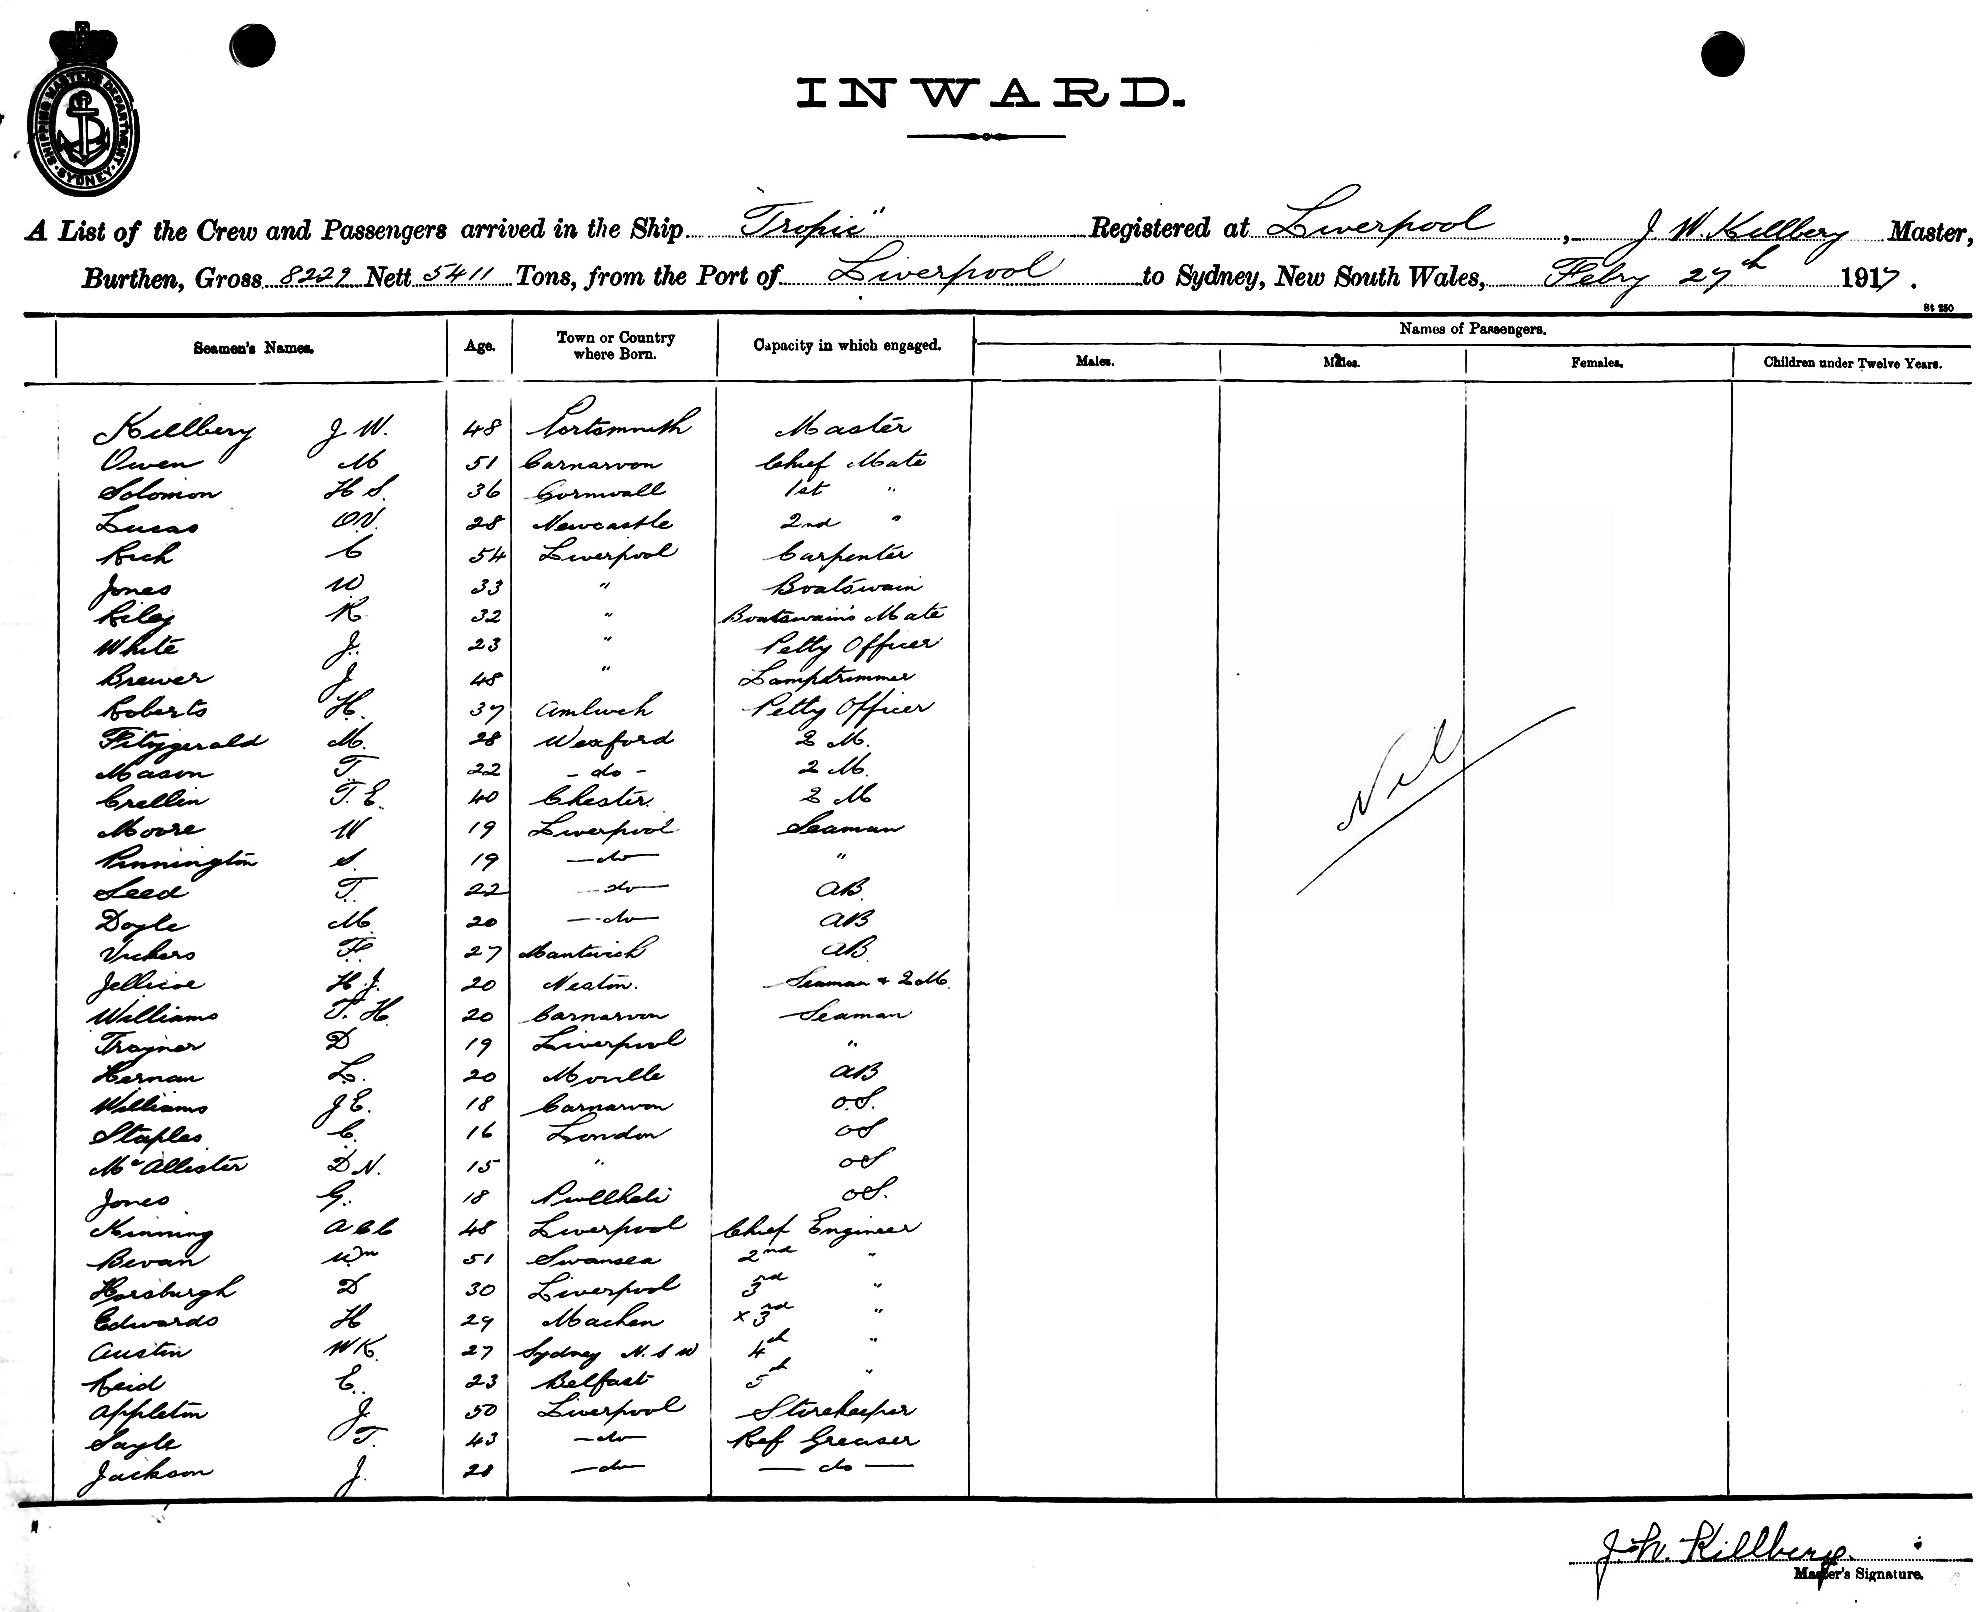 SHIPPING MASTERS DEPARTMENT
SYDNEY
INWARD.
A List of the Crew and Passengers arrived in the Ship "Tropic" Registered at Liverpool, J W. Killbery Master,
Burthen, Gross 8229 Nett 5411 Tons, from the Port of Liverpool to Sydney, New South Wales, Febry 27th 1917.
St 250
Seamen's Names. Age. Town or Country where Born. Capacity in which engaged. Names of Passengers.
Males. Males. Females. Children under Twelve Years.
Killbery J W. 48 Portsmouth Master
Owen M 51 Carnarvon Chief Mate
Solomon H S. 36 Cornwall 1st "
Lucas O.V. 28 Newcastle 2nd "
Rich C 54 Liverpool Carpenter
Jones W 33 " Boatswain
Riley R 32 " Boatswain's Mate
White J. 23 " Petty Officer
Brewer J 48 " Lamptrimmer
Roberts H. 37 Amlwch Petty Officer
Fitzgerald M. 28 Wexford 2 M.
Mason T. 22 - do - 2 M.
Crellin T. E. 40 Chester. 2 M
Moore W 19 Liverpool Seaman
Pinnington S. 19 — do — "
Seed T. 22 — do — AB.
Doyle M. 20 — do — AB
Vickers F. 27 Nantwich AB
Jellicoe H J. 20 Neston. Seaman & 2 M.
Williams T. H. 20 Carnarvon Seaman
Traynor D 19 Liverpool "
Hernan L. 20 Moville AB
Williams J E. 18 Carnarvon O.S.
Staples C. 16 London OS
McAllister D N. 15 " OS
Jones G. 18 Pwllheli OS.
Kinning A C C 48 Liverpool Chief Engineer
Bevan Wm 51 Swansea 2nd "
Horsburgh D 30 Liverpool 3rd "
Edwards H 29 Machen x 3rd "
Austin W K. 27 Sydney N. S W 4th "
Reid E. 23 Belfast 5th "
Appleton J. 50 Liverpool Storekeeper
Sayle T. 43 — do — Ref Greaser
Jackson J. 28 — do — — do —
Nil
J. W. Killbery.
Master's Signature.